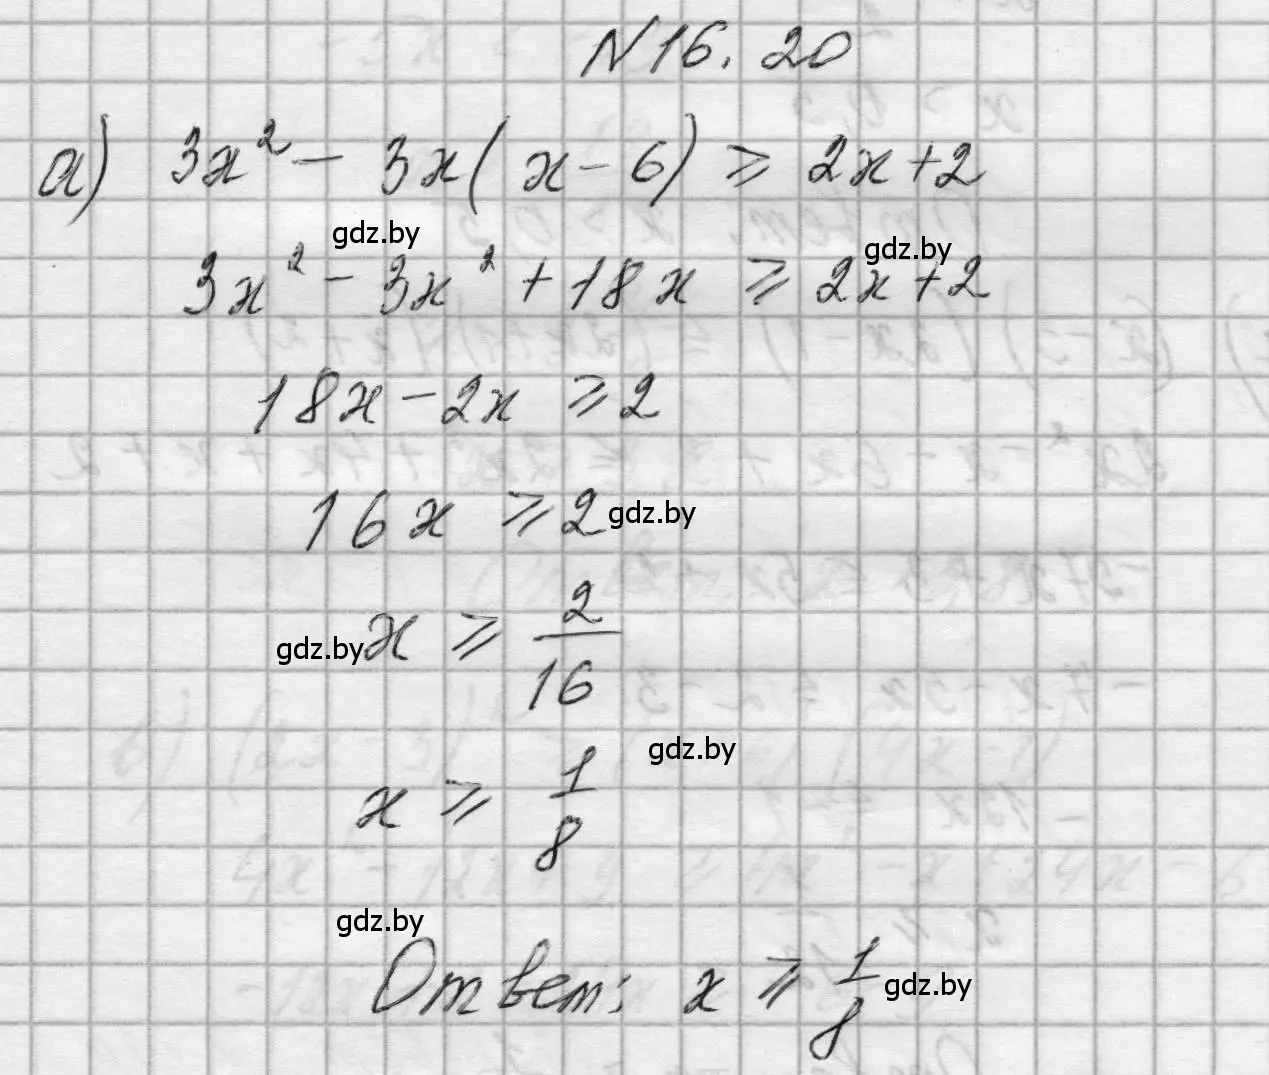 N 16.20
а) 3x² - 3x(x - 6) ⩾ 2x + 2
gdz.by
gdz.by
3x² - 3x² + 18x ⩾ 2x + 2
18x - 2x ⩾ 2
16x ⩾ 2 gdz.by
gdz.by x ⩾ 2/16
gdz.by
x ⩾ 1/8
gdz.by
Ответ: x ⩾ 1/8 gdz.by